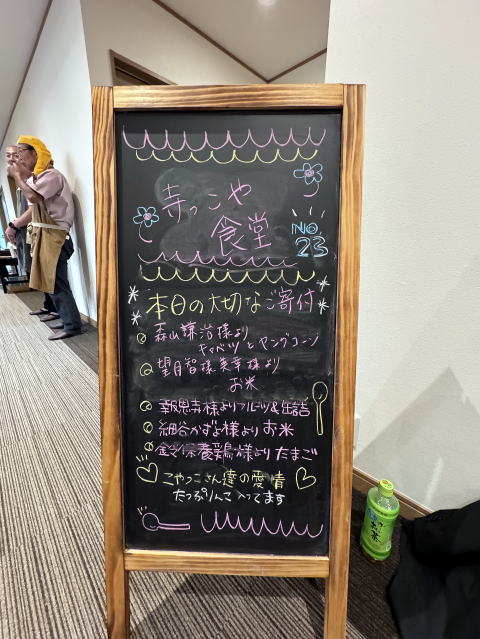 寺っこや
食堂
No
23
本日の大切なご寄付
森山謙治様より
キャベツとヤングコーン
望月智様美幸様より
お米
報恩寺様よりフルーツ&缶詰
細谷かずよ様よりお米
鈴保養鶏様よりたまご
こやっこさん達の愛情
たっぷりんこ入ってます
お茶